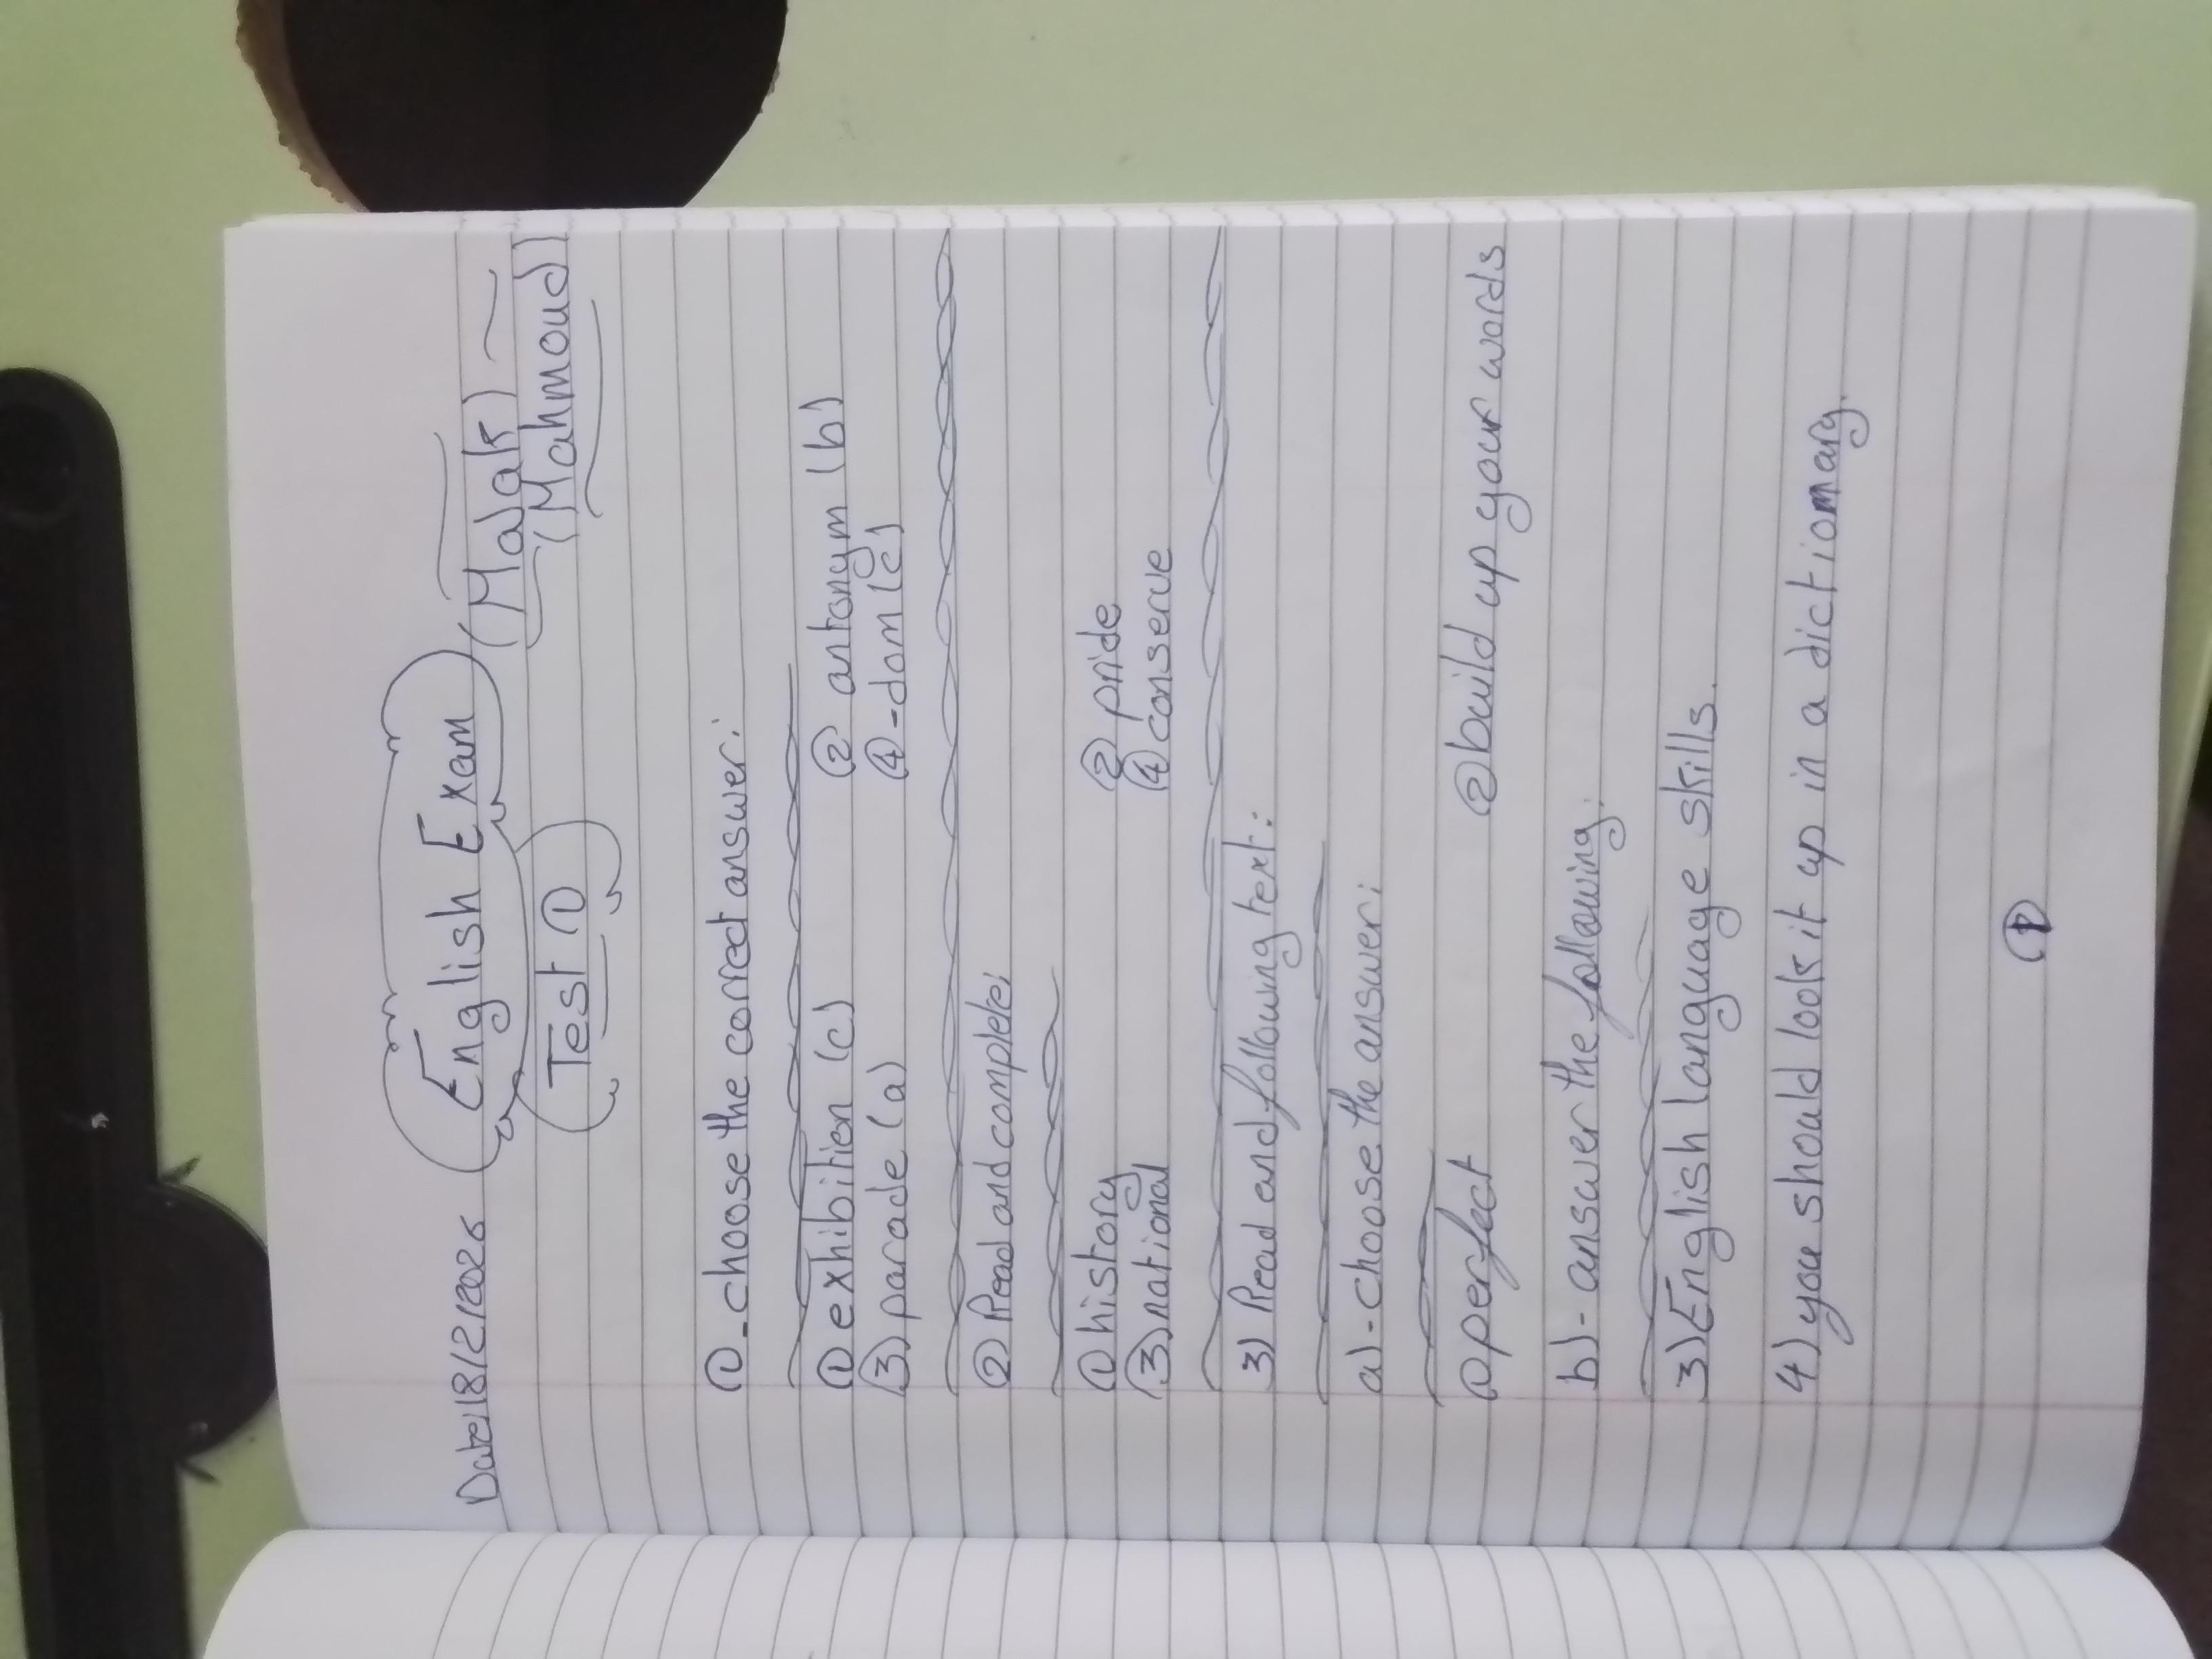 Date 18/2/2026 English Exam (Malak)
Test ① (Mahmoud)
①-choose the correct answer:
① exhibition (c) ② antonym (b)
③ parade (a) ④ -dom (c)
② Read and complete:
① history ② pride
③ national ④ conserve
3) Read and following text:
a)-choose the answer:
① perfect ② build up your words
b)- answer the following:
3) English language skills.
4) you should look it up in a dictionary.
①